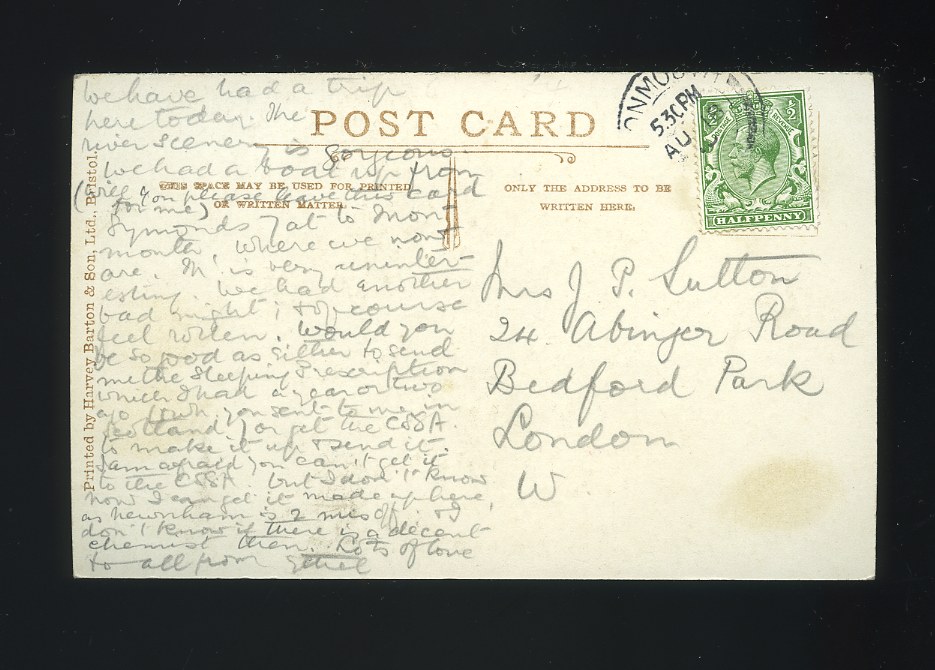 We have had a trip
here today. The
river scenery is gorgeous
We had a boat up from
(Will you please leave this card
for me)
Symonds Yat to Mon-
mouth where we now
are. M. is very uninter-
esting. We had another
bad night, & of course
feel rotten. Would you
be so good as either to send
me the Sleeping Prescription
which I had a year or two
ago (wh. you sent to me in
Scotland) or get the CSSA.
to make it up & send it.
I am afraid you can't get it
to the CSSA. but I don't know
how I can get it made up here,
as Newnham is 2 mls off. & I
don't know if there is a decent
chemist then. Lots of love
to all from Ethel
POST CARD
THIS SPACE MAY BE USED FOR PRINTED
OR WRITTEN MATTER.
ONLY THE ADDRESS TO BE
WRITTEN HERE.
Printed by Harvey Barton & Son, Ltd., Bristol.
MONMOUTH
5.30 PM
AU
HALFPENNY
Mrs J. P. Sutton
24 Abinger Road
Bedford Park
London
W.